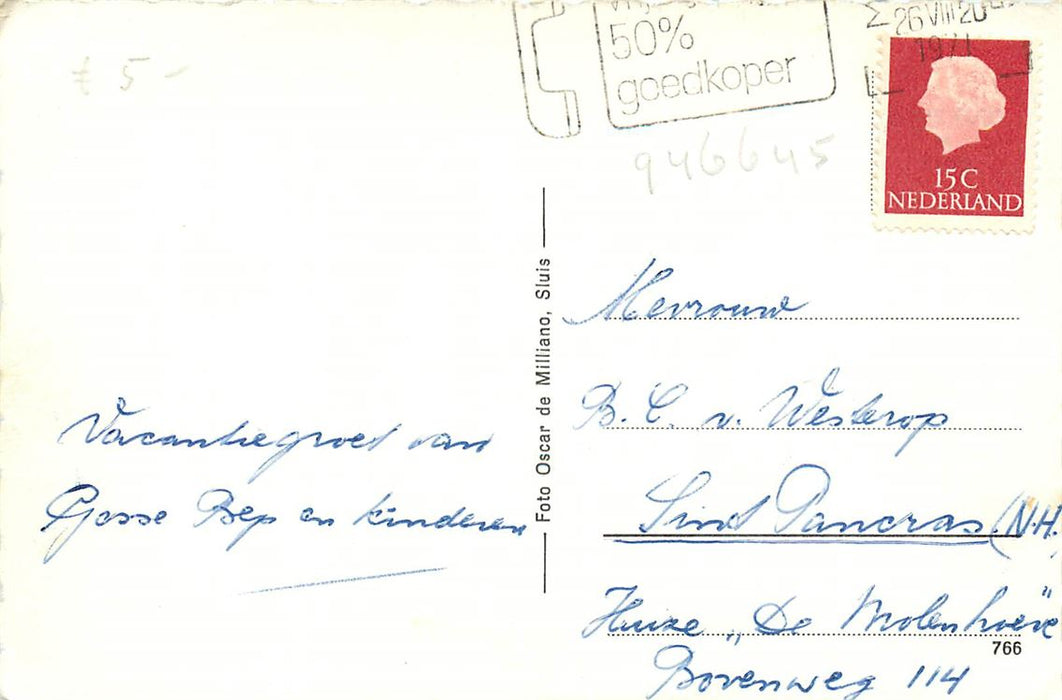 50%
goedkoper
26 VIII 20
1971
15 C
NEDERLAND
€ 5 -
946645
Foto Oscar de Milliano, Sluis
Vacantiegroet van
Gosse Bep en kinderen
Mevrouw
B. C. v. Westerop
Sint Pancras (N.H.
Huize „De Molenhoeve"
766
Bovenweg 114